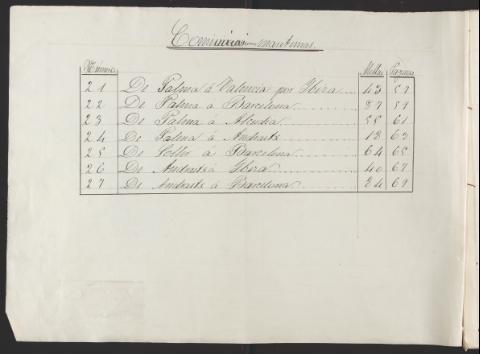 Comunicaciones maritimas.
Número Millas Páginas
21 De Palma á Valencia por Ibiza 43 57
22 De Palma á Barcelona 87 59
23 De Palma á Alcudia 58 61
24 De Palma á Andraitx 18 63
25 De Soller á Barcelona 64 65
26 De Andraitx á Ibiza 40 67
27 De Andraitx á Barcelona 84 69